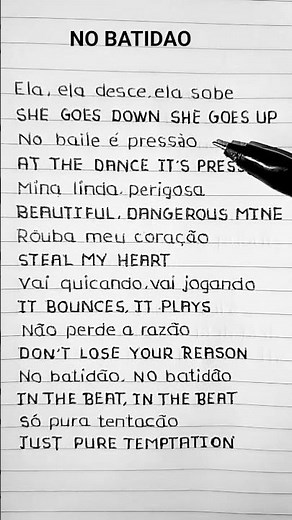 NO BATIDAO
Ela, ela desce, ela sobe
SHE GOES DOWN SHE GOES UP
No baile é pressão
AT THE DANCE IT'S PRESS
Mina linda, perigosa
BEAUTIFUL, DANGEROUS MINE
Rouba meu coração
STEAL MY HEART
Vai quicando, vai jogando
IT BOUNCES, IT PLAYS
Não perde a razão
DON'T LOSE YOUR REASON
No batidão, NO batidão
IN THE BEAT, IN THE BEAT
Só pura tentação
JUST PURE TEMPTATION